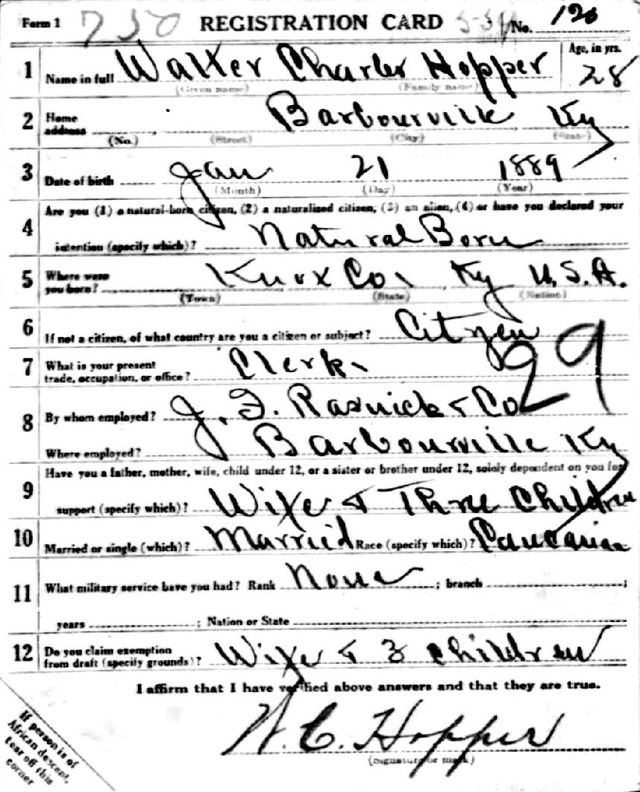 Form 1 750 REGISTRATION CARD No. 120
1 Name in full Walter Charles Hopper Age, in yrs. 28
(Given name) (Family name)
2 Home address Barbourville Ky
(No.) (Street) (City) (State)
3 Date of birth Jan 21 1889
(Month) (Day) (Year)
4 Are you (1) a natural-born citizen, (2) a naturalized citizen, (3) an alien, (4) or have you declared your
intention (specify which)? Natural Born
5 Where were you born? Knox Co. Ky U.S.A.
(Town) (State) (Nation)
6 If not a citizen, of what country are you a citizen or subject? Citizen
7 What is your present trade, occupation, or office? Clerk 29
8 By whom employed? J. F. Rasnick & Co
Where employed? Barbourville Ky
9 Have you a father, mother, wife, child under 12, or a sister or brother under 12, solely dependent on you for
support (specify which)? Wife & Three Children
10 Married or single (which)? Married Race (specify which)? Caucasian
11 What military service have you had? Rank None ; branch ;
years ; Nation or State
12 Do you claim exemption from draft (specify grounds)? Wife & 3 children
I affirm that I have verified above answers and that they are true.
W. C. Hopper
(Signature or mark)
If person is of
African descent,
tear off this
corner